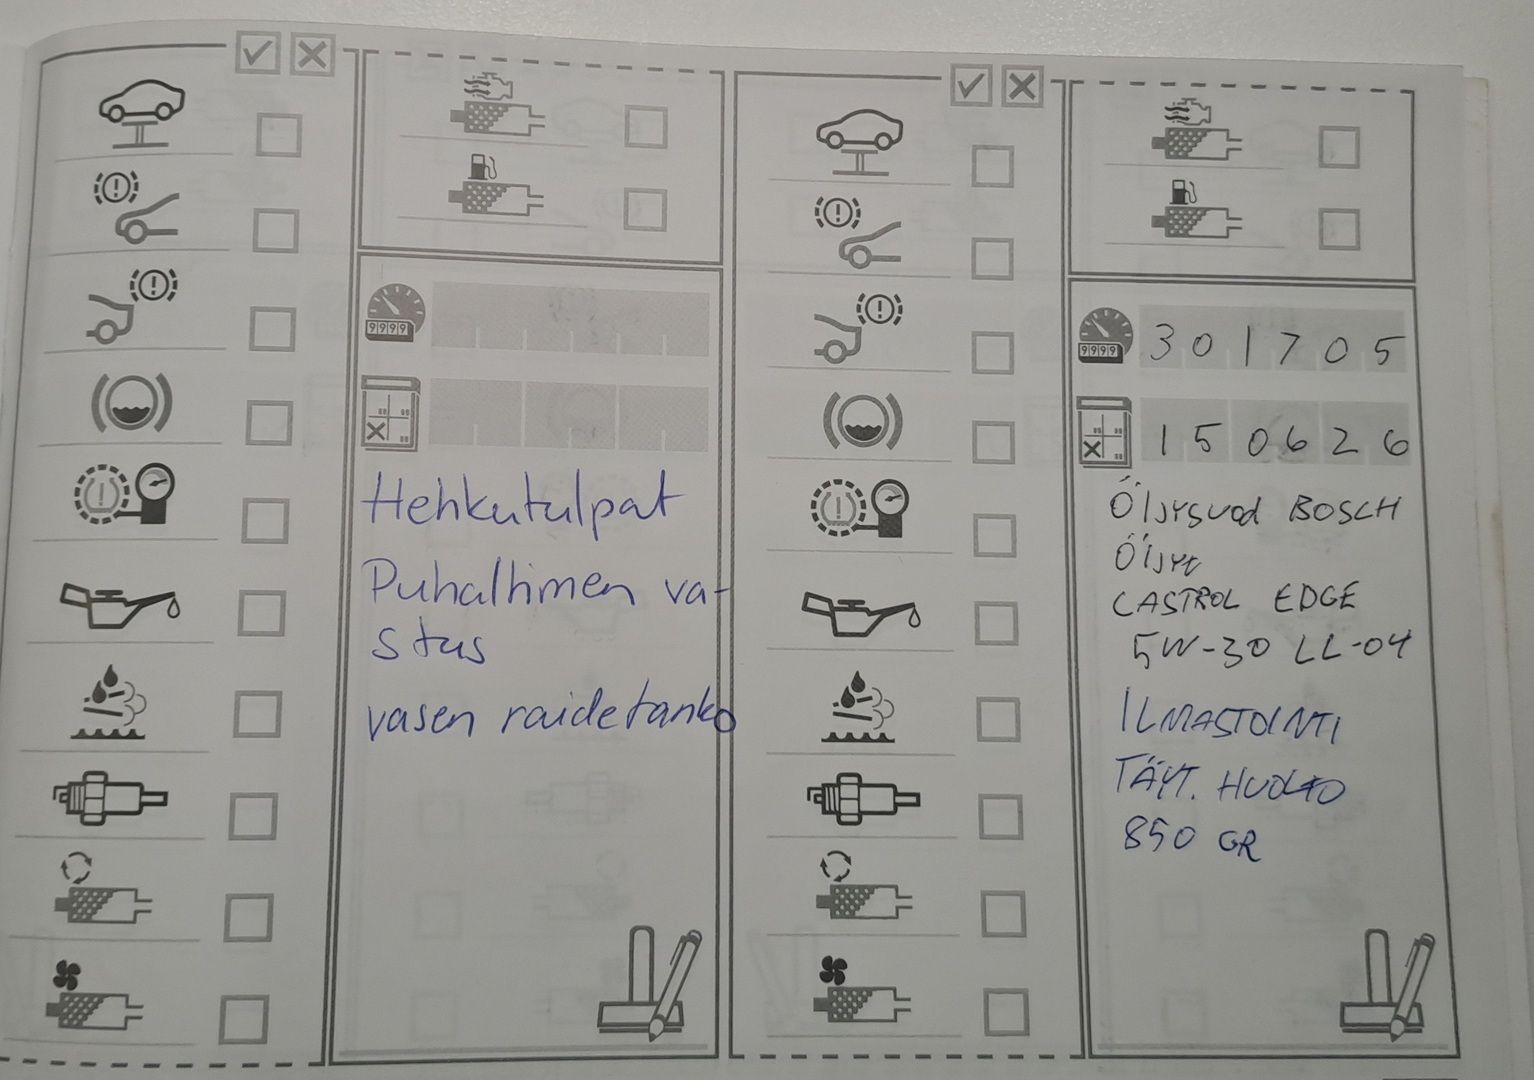 9999
Hehkutulpat
Puhaltimen va-
stus
vasen raidetanko
9999
301705
150626
Öljysuod BOSCH
Öljyt
CASTROL EDGE
5W-30 LL-04
ILMASTOINTI
TÄYT. HUOLTO
850 GR